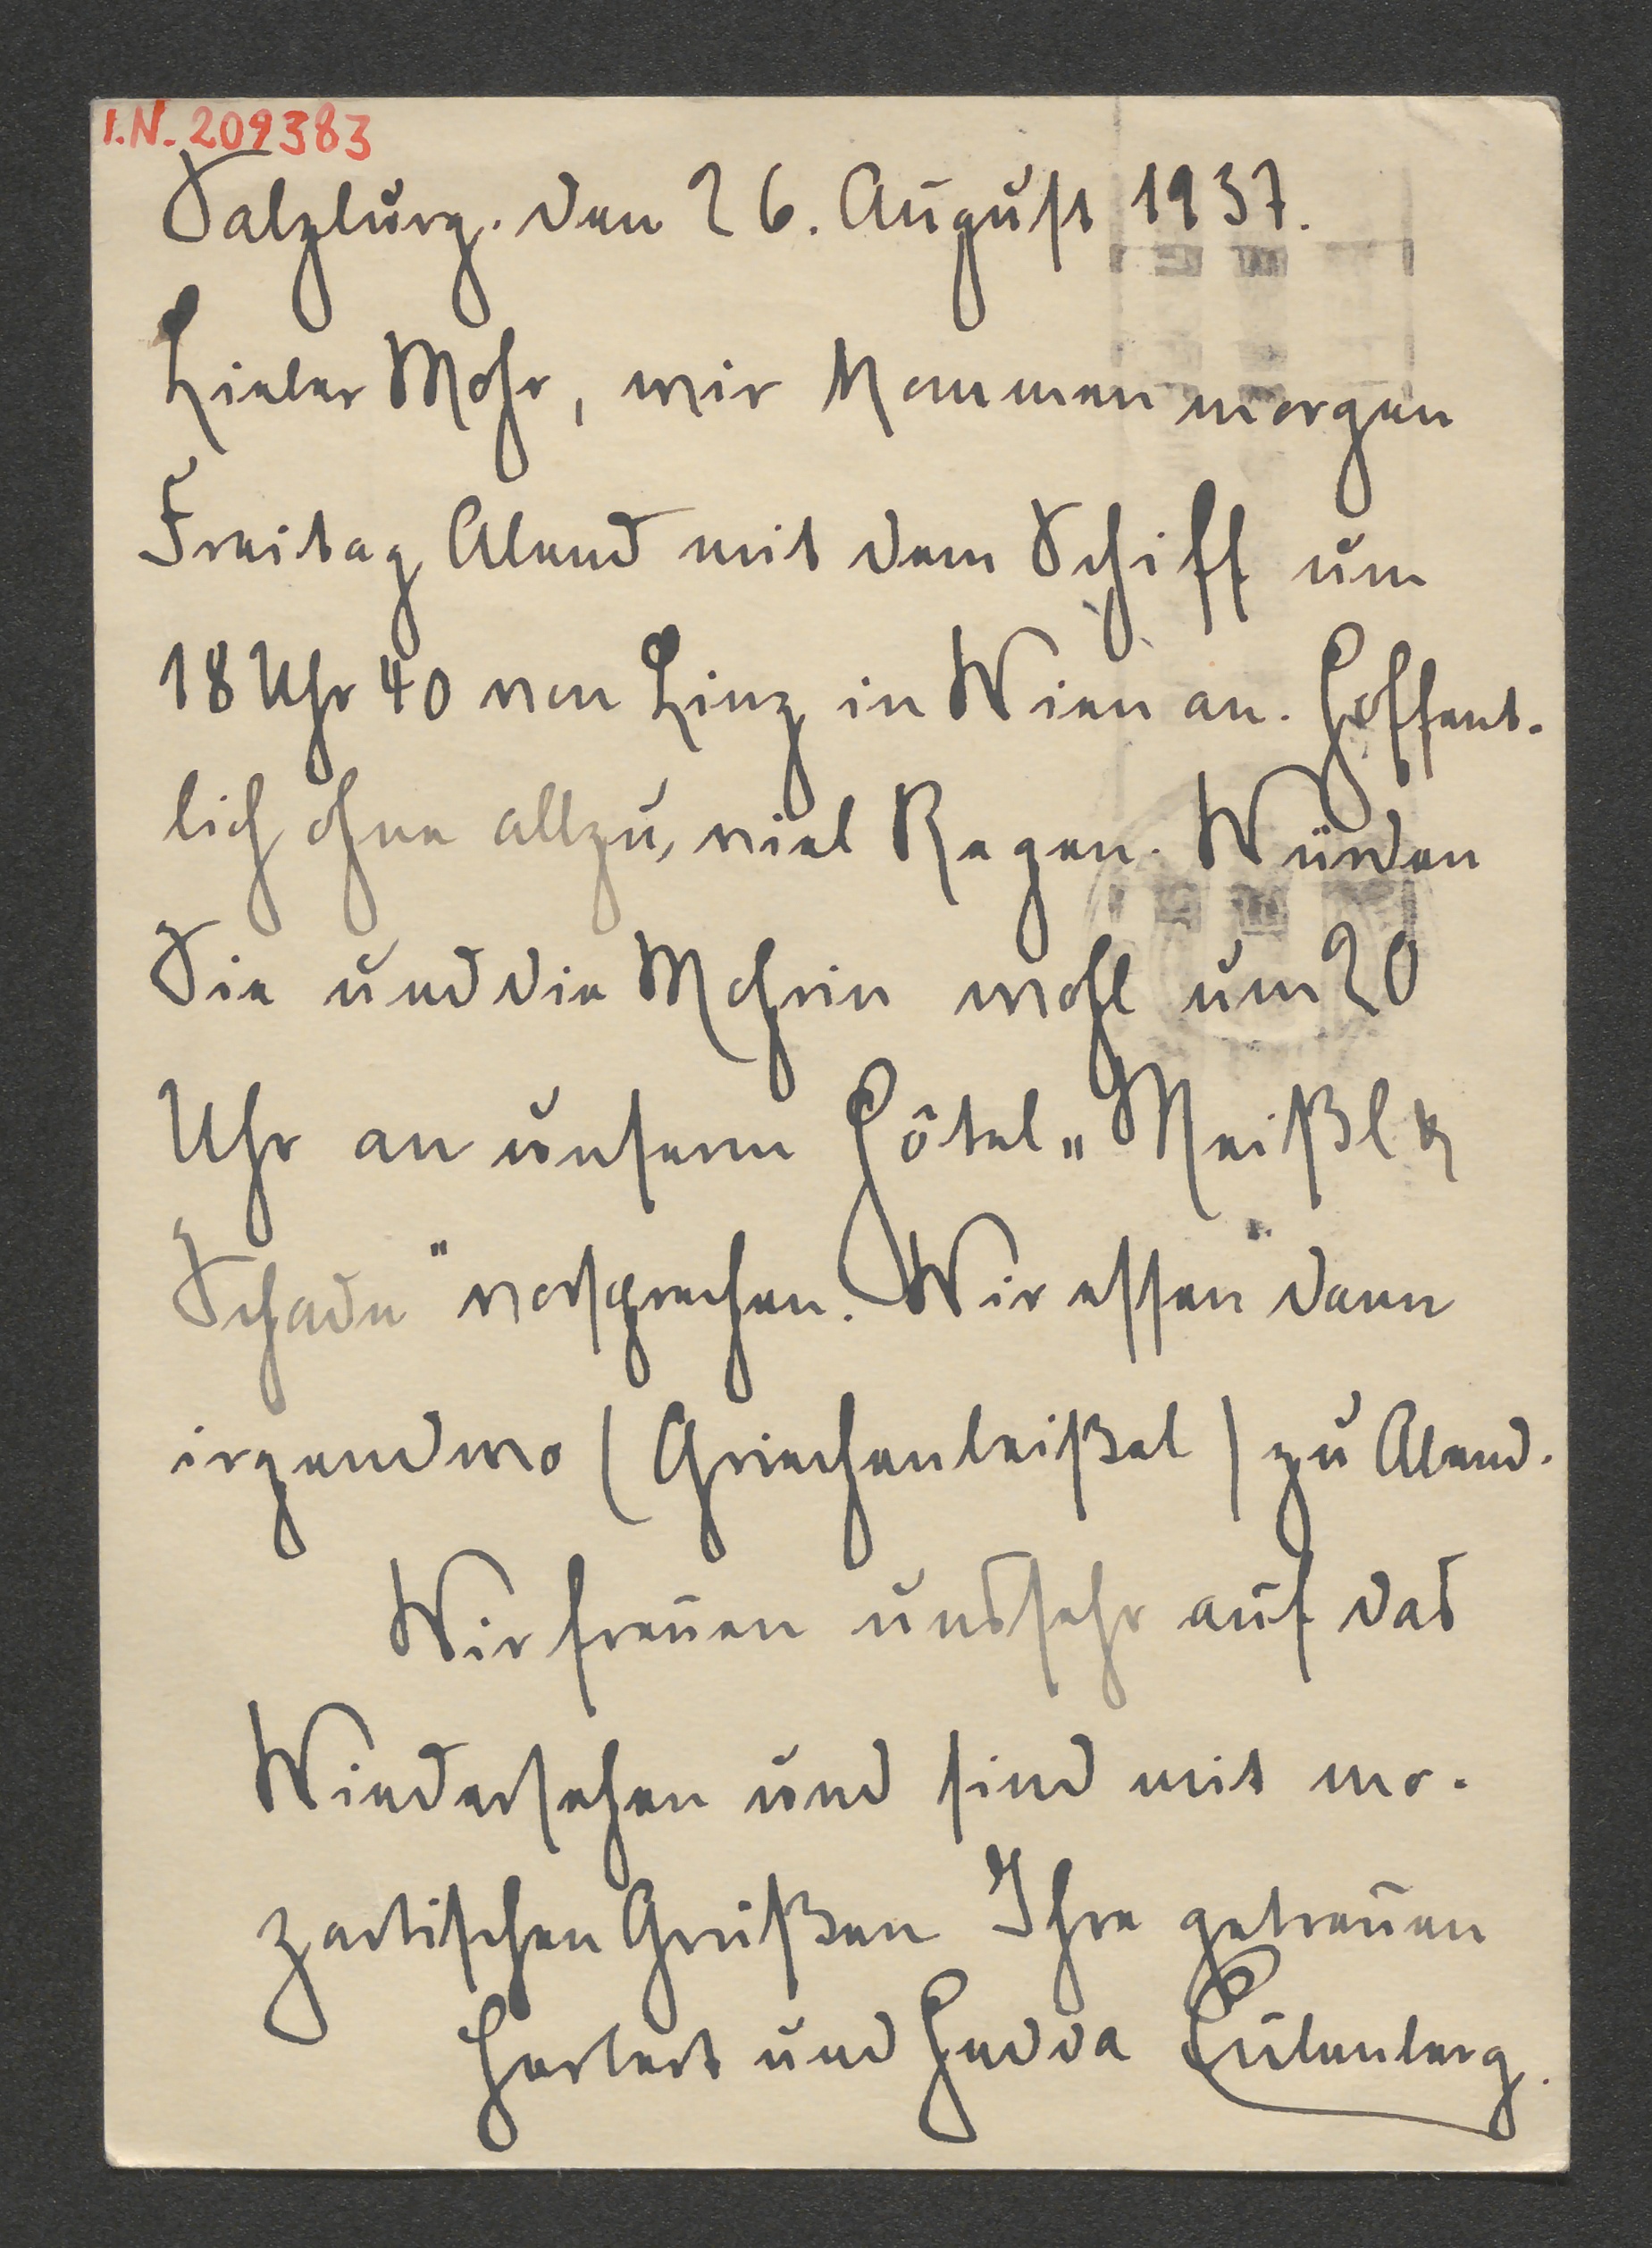 I.N. 209383
Salzburg. den 26. August 1937.
Lieber Mohr, wir kommen morgen
Freitag Abend mit dem Schiff um
18 Uhr 40 von Linz in Wien an. Hoffent-
lich ohne allzu, viel Regen. Würden
Sie und die Mohrin wohl um 20
Uhr an unserm Hôtel „Meißl &
Schadn" vorsprechen. Wir essen dann
irgendwo (Griechenbeißel) zu Abend.
Wir freuen uns sehr auf das
Wiedersehen und sind mit mo-
zartischen Grüßen Ihre getreuen
Herbert und Hedda Eulenberg.